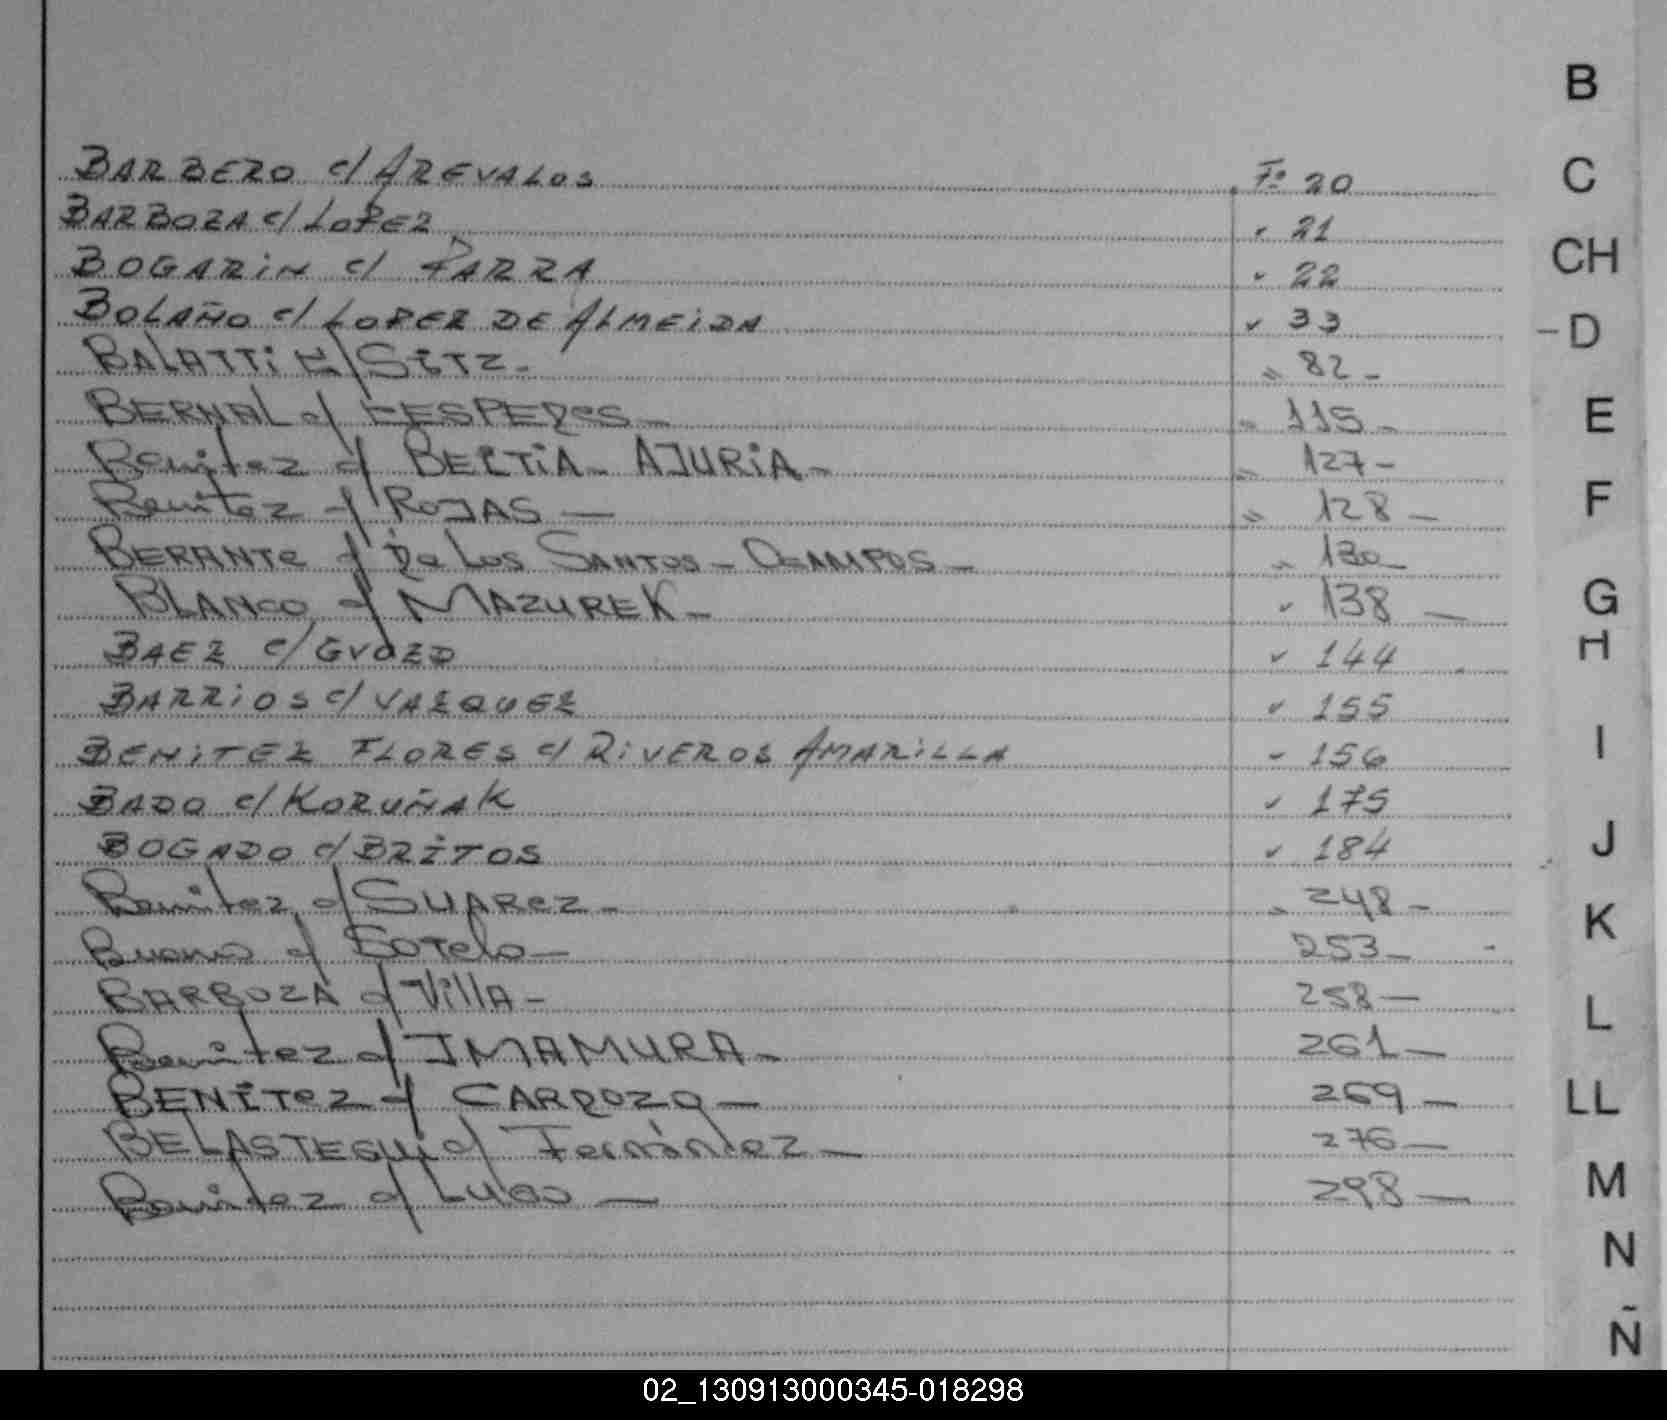 B
C
CH
-D
E
F
G
H
I
J
K
L
LL
M
N
Ñ
BARBERO c/ AREVALOS Fº 20
BARBOZA c/ LOPEZ " 21
BOGARIN c/ PARRA " 22
BOLAÑO c/ LOPEZ DE ALMEIDA " 33
BALATTI c/ SEITZ - " 82 -
BERNAL c/ - " 115 -
Benitez c/ BECTIA - AJURIA - " 127 -
Benitez c/ ROJAS - " 128 -
BERANTe c/ De Los SANTOS - OCAMPOS - " 130 -
BLANCO c/ MAZUREK - " 138 -
BAEZ c/ GVOZD " 144
BARRIOS c/ VAZQUEZ " 155
BENITEZ FLORES c/ RIVEROS AMARILLA " 156
BADO c/ KORUÑAK " 175
BOGADO c/ BRITOS " 184
Benitez c/ SUAREZ - " 248 -
Bueno c/ SOTelo - 253 -
BARBOZA c/ VillA - 258 -
Benitez c/ IMAMURA - 261 -
BENITez c/ CARDOZO - 269 -
BELASTEGUI c/ Fernández - 276 -
Benitez c/ LUGO - 298 -
02_130913000345-018298